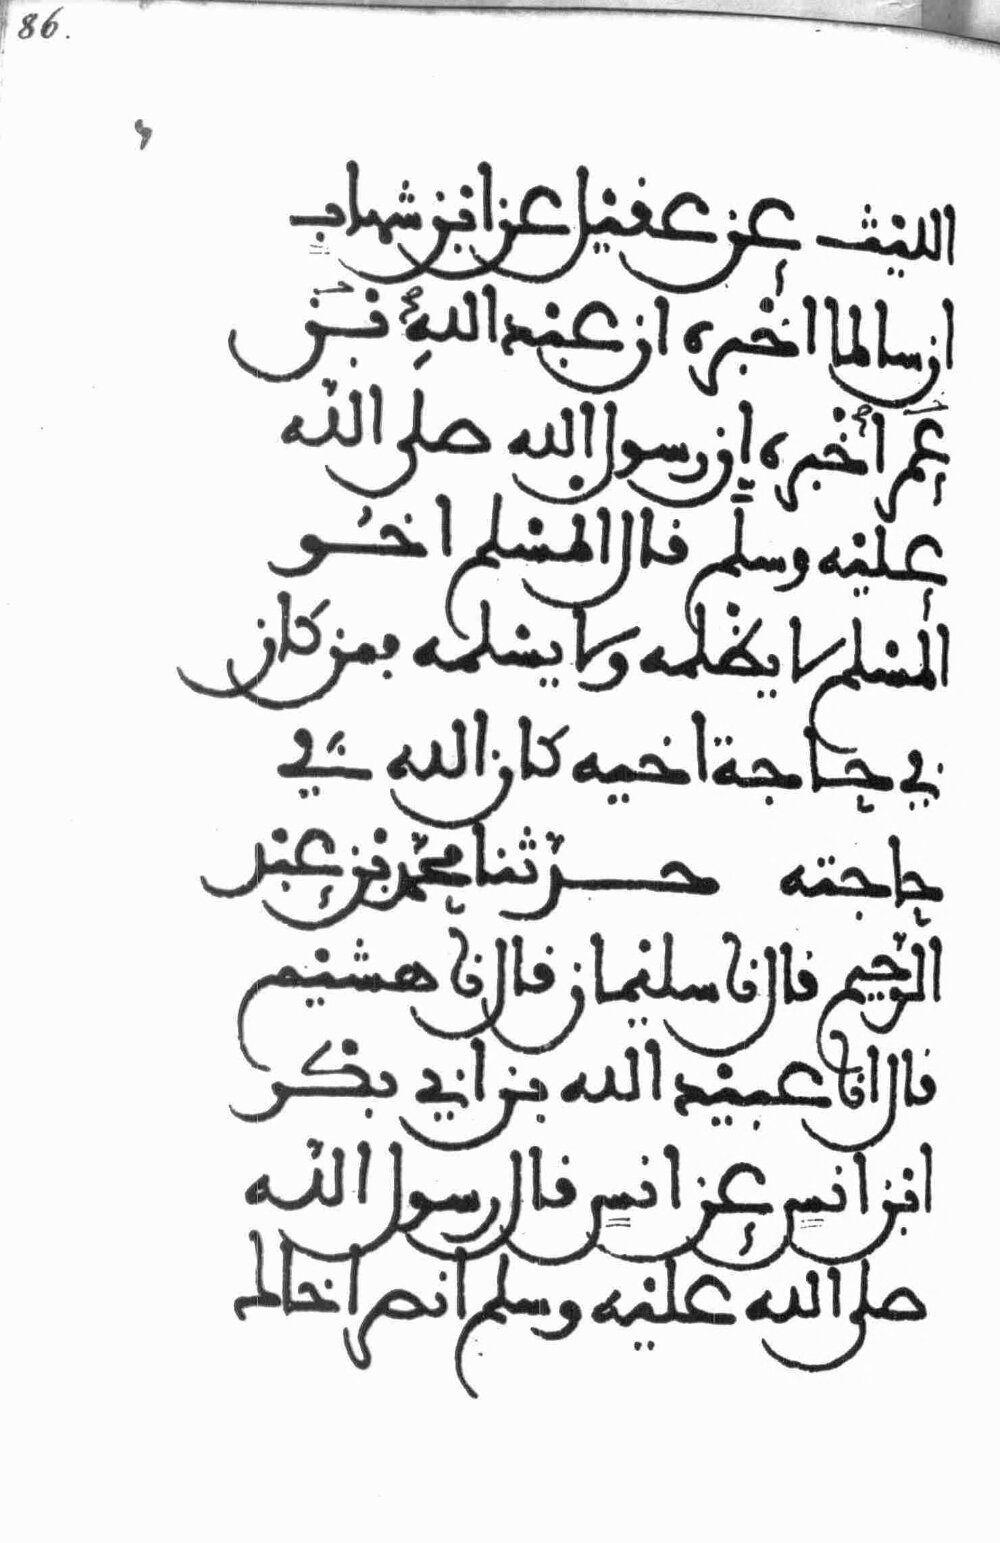 86.
الليث عن عقيل عن ابن شهاب
ان سالما اخبره ان عبد الله بن
عمر أخبره ان رسول الله صلى الله
عليه وسلم قال المسلم اخو
المسلم لا يظلمه ولا يسلمه ومن كان
في حاجة اخيه كان الله في
حاجته حدثنا محمد بن عبد
الرحيم قال نا سليمان قال نا هشيم
قال انا عبيد الله بن ابي بكر
ابن انس عن انس قال رسول الله
صلى الله عليه وسلم انصر اخاك